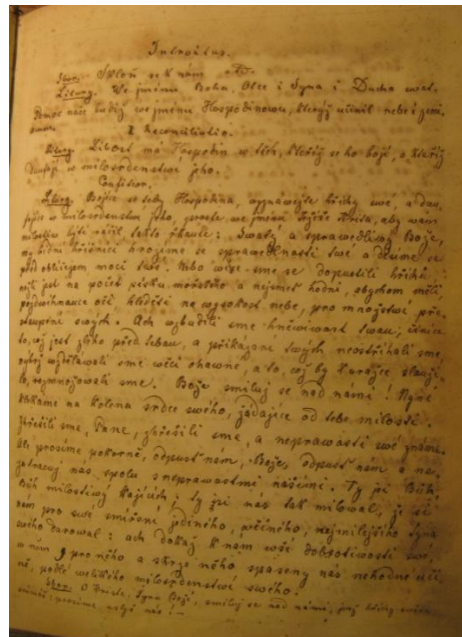 Introitus.
Sbor. Skloň se k nám
Liturg. We jménu Boha, Otce i Syna i Ducha swat.
Pomoc naše budiž we jménu Hospodinowu, kterýž učinil nebe i zem.
I Reconciliatio.
Liturg. Libost má Hospodin w těch, kteříž se ho bojí, a kteříž
daufají w milosrdenstwí jeho.
Confiteor.
Liturg. Bojíce se tedy Hospodina, wyznáwejte hříchy swé, a dau-
fajíce w milosrdenstwí jeho, proste we jménu Krista, aby wám
milostiw býti ráčil takto řkauce: Swatý a sprawedliwý Bože,
my bídní hříšníci hrozíme se sprawedlnosti twé a děsíme se
před obličejem moci twé. Nebo více sme se dopustili hříchů
než jest počet písku mořského a nejsme hodni, abychom měli
pozdwihnauce očí hleděti na wysokost nebe, pro množstwí pře-
stupků swých. Ach wzbudili sme hněwiwost twau, činíce
to, což jest zlého před tebau, a přikázaní twých neostříhali sme
sme wěci ohawné, a to, což by k
rozmnožowali sme. Bože smiluj se nad námi! Nyní
klekáme na kolena srdce swého, žádajíce od tebe milosti.
Zhřešili sme, Pane, zhřešili sme, a neprawosti swé známe.
Ale prosíme pokorně, odpusť nám, Bože, odpusť nám a ne-
zatracuj nás spolu s neprawostmi našimi. Ty jsi Bůh,
Bůh milostiwý kajících; ty jsi nás tak milowal, že si
nám pro swé smíření jediného, wěčného, nejmilejšího Syna
swého darowal: ach dokaž k nám wší dobrotiwosti swé,
w něm, pro něho a skrze něho spasený nás nehodné uči-
ně, podlé welikého milosrdenstwí swého.
Sbor. O Kriste, Synu Boží, smiluj se nad námi,
prosíme, uslyš nás!